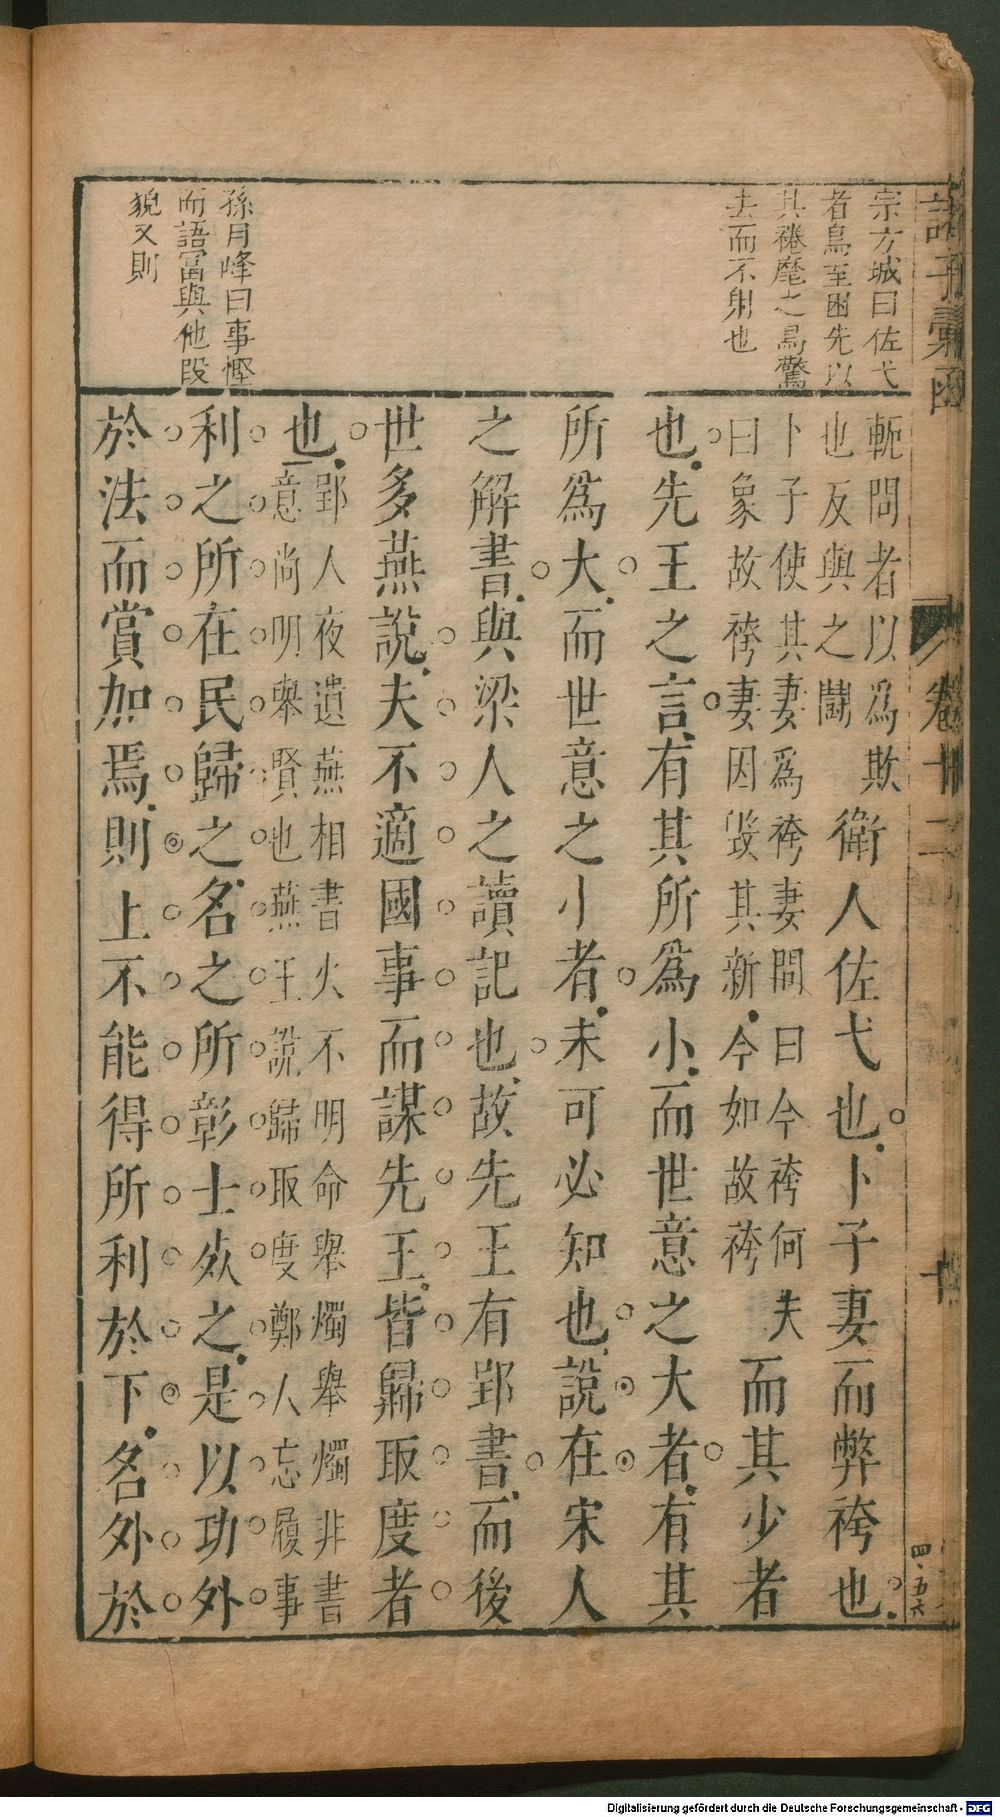 宗方城曰佐弋
者鳥至因先以
其裷麾之鳥驚
去而不射也
孫月峰曰事慳
而語冨與他段
貌又則
軛問者以爲欺
也反與之鬭
衛人佐弋也卜子妻而弊袴也
卜子使其妻爲袴妻問曰今袴何夫
曰象故袴妻因毀其新今如故袴
而其少者
也先王之言有其所爲小而世意之大者有其
所爲大而世意之小者未可必知也說在宋人
之解書與梁人之讀記也故先王有郢書而後
世多燕說夫不適國事而謀先王皆歸取度者
也
郢人夜遺燕相書火不明命舉燭舉燭非書
意尚明舉賢也燕王說歸取度鄭人忘履事
利之所在民歸之名之所彰士死之是以功外
於法而賞加焉則上不能得所利於下名外於
諸子彙函
卷十二
十
四·五六
Digitalisierung gefördert durch die Deutsche Forschungsgemeinschaft - DFG